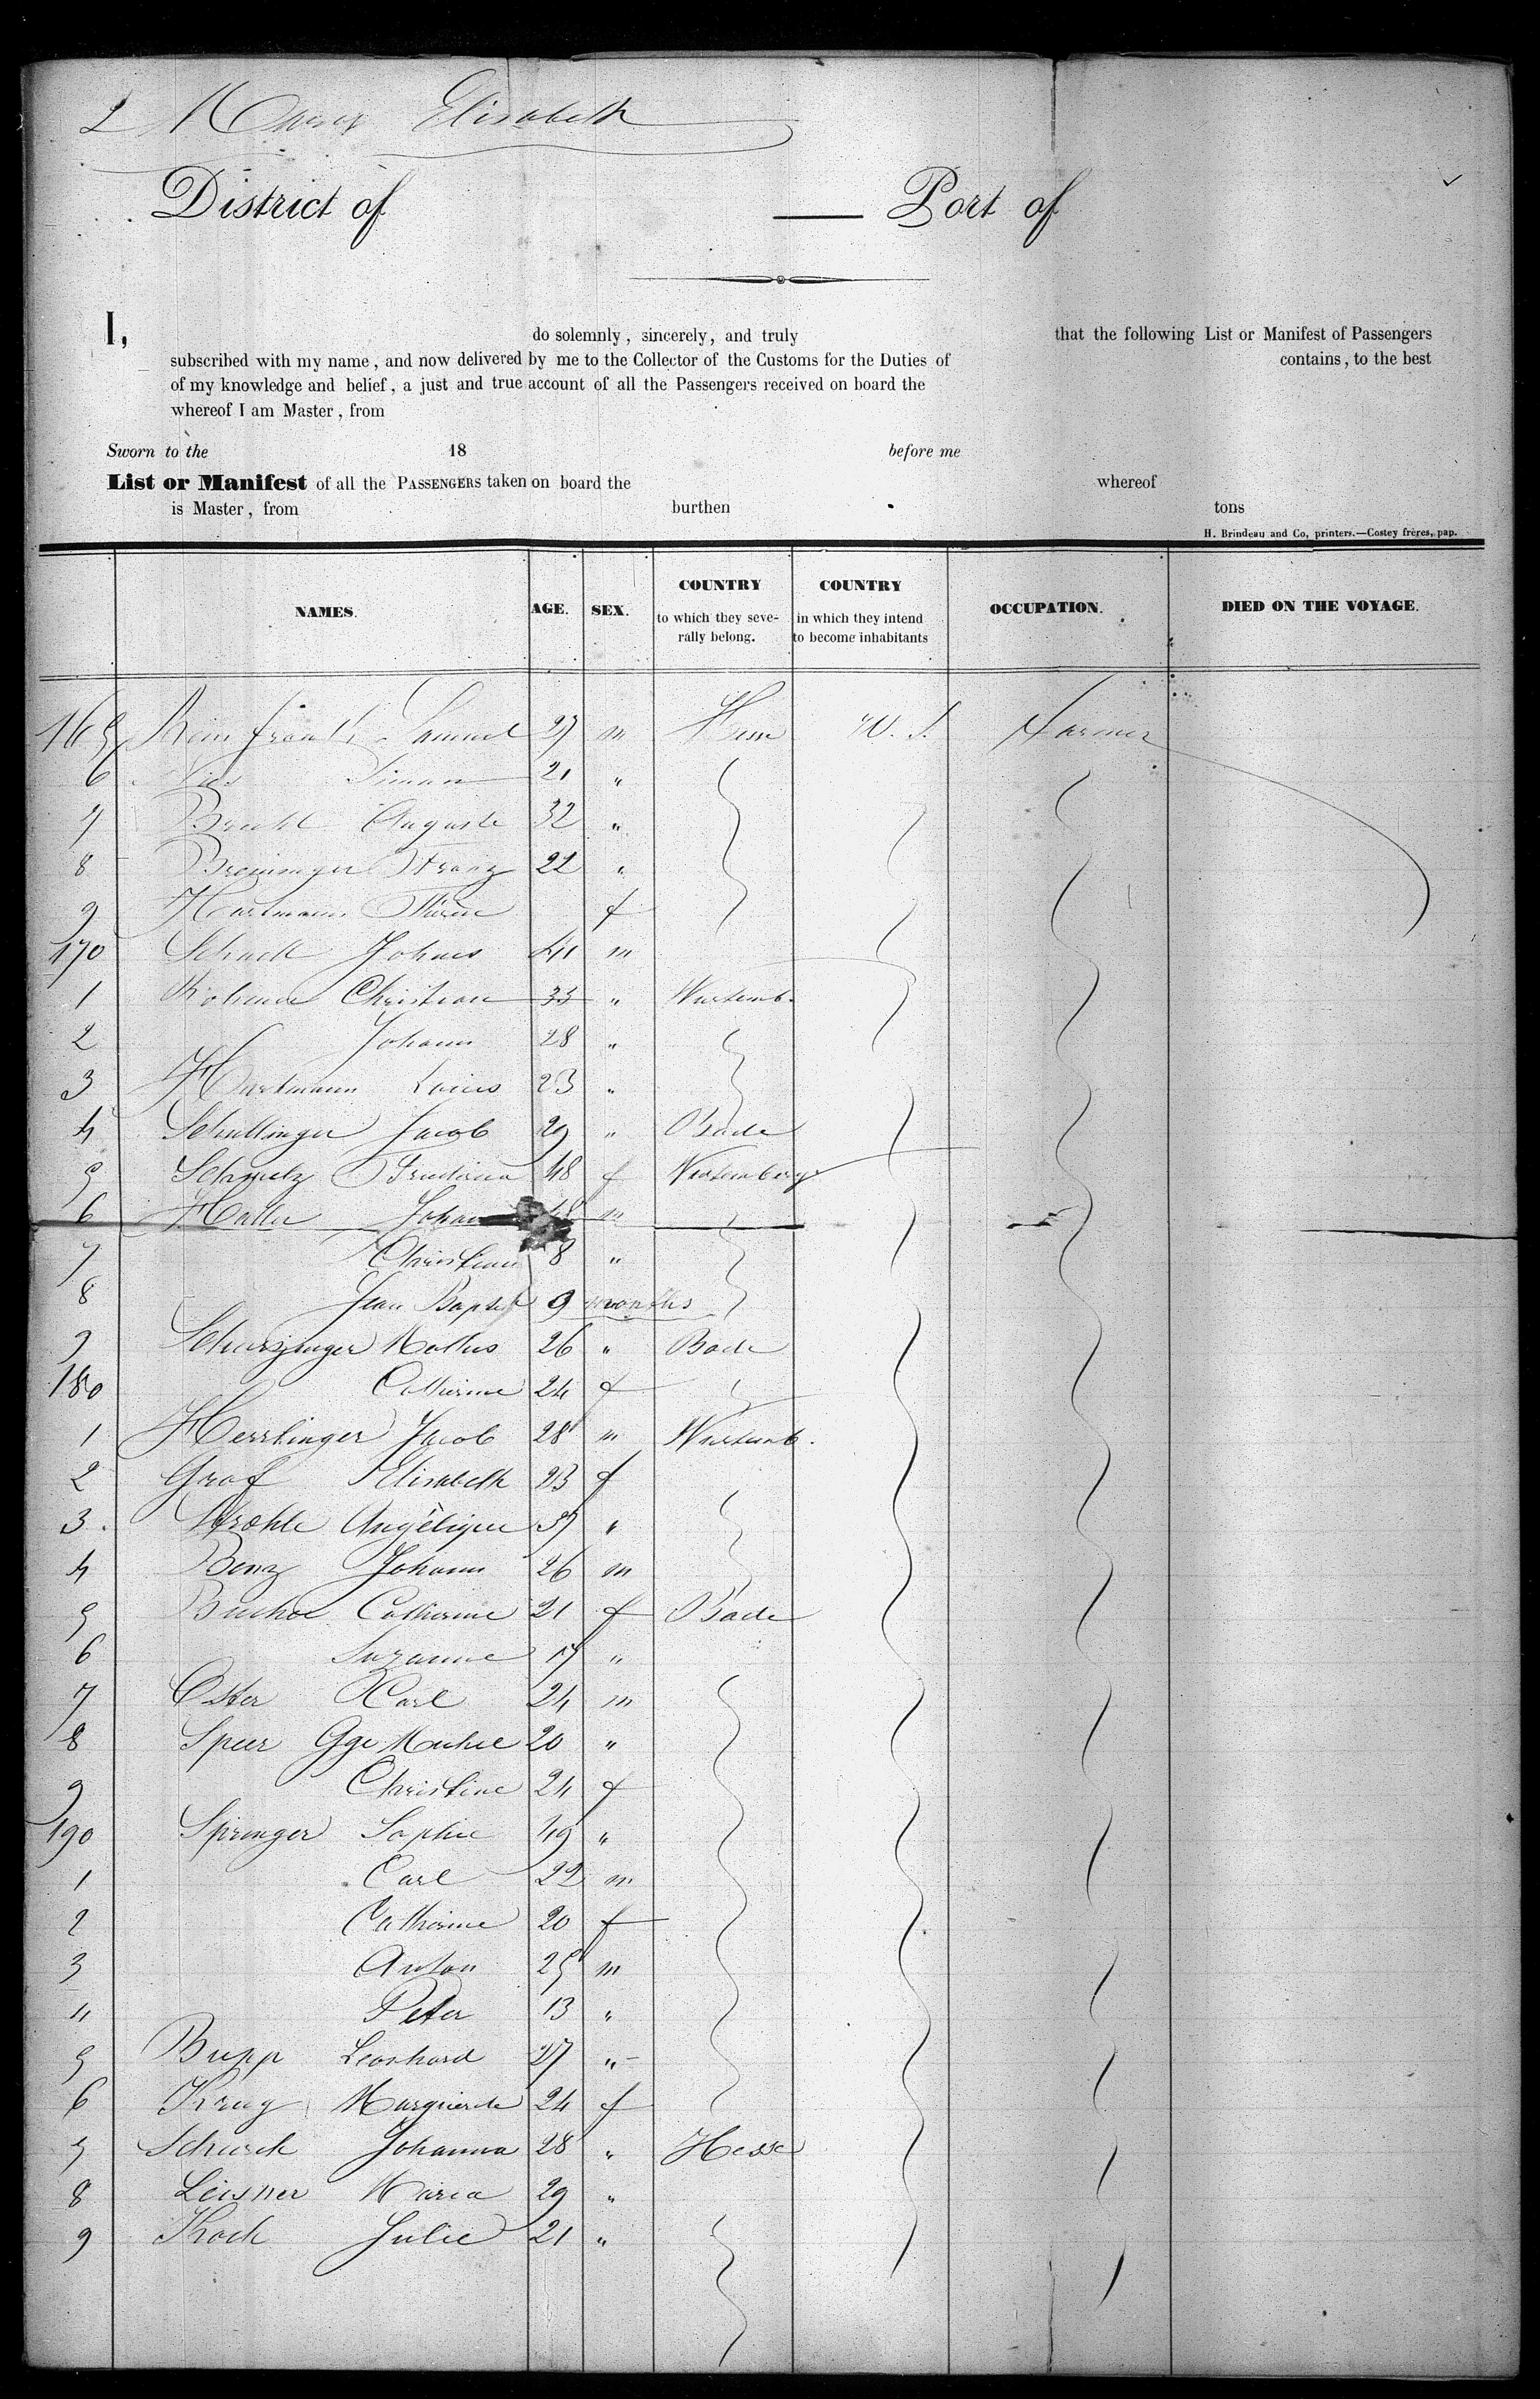 2 Elisabeth
District of — Port of
I, do solemnly, sincerely, and truly that the following List or Manifest of Passengers
subscribed with my name, and now delivered by me to the Collector of the Customs for the Duties of contains, to the best
of my knowledge and belief, a just and true account of all the Passengers received on board the
whereof I am Master, from
Sworn to the 18 before me
List or Manifest of all the PASSENGERS taken on board the whereof
is Master, from burthen tons
H. Brindeau and Co, printers.—Costey frères, pap.
NAMES. AGE. SEX. COUNTRY to which they seve-rally belong. COUNTRY in which they intend to become inhabitants OCCUPATION. DIED ON THE VOYAGE.
165 Samuel 27 m Hesse U. S. Farmer
6 Simon 21 "
7 Auguste 32 "
8 Breininger Franz 22 "
9 Hartmann f
170 Schuch Johnes 41 m
1 Christian 33 " Wurtemb.
2 Johann 28 "
3 Hartmann Louis 23 "
4 Schullinger Jacob 29 " Bade
5 Schmelz 48 f Wurtemberg
6 Haller m
7 Christian 8 "
8 Jean Baptist 9 months
9 Mathis 26 " Bade
180 Catherine 24 f
1 Herrlinger Jacob 28 m Wurtemb.
2 Graf Elisabeth 23 f
3. Strohle Angélique 37 "
4 Benz Johann 26 m
5 Catherine 21 f Bade
6 Suzanne 17 "
7 Oster Karl 24 m
8 Speer Gge Michel 20 "
9 Christine 24 f
190 Springer Sophie 49 "
1 Carl 22 m
2 Catherine 20 f
3 Anton 25 m
4 Peter 13 "
5 Bupp Leonhard 27 "
6 Krug Marguerite 24 f
7 Schuch Johanna 28 " Hesse
8 Leisner Maria 29 "
9 Koch Julie 21 "